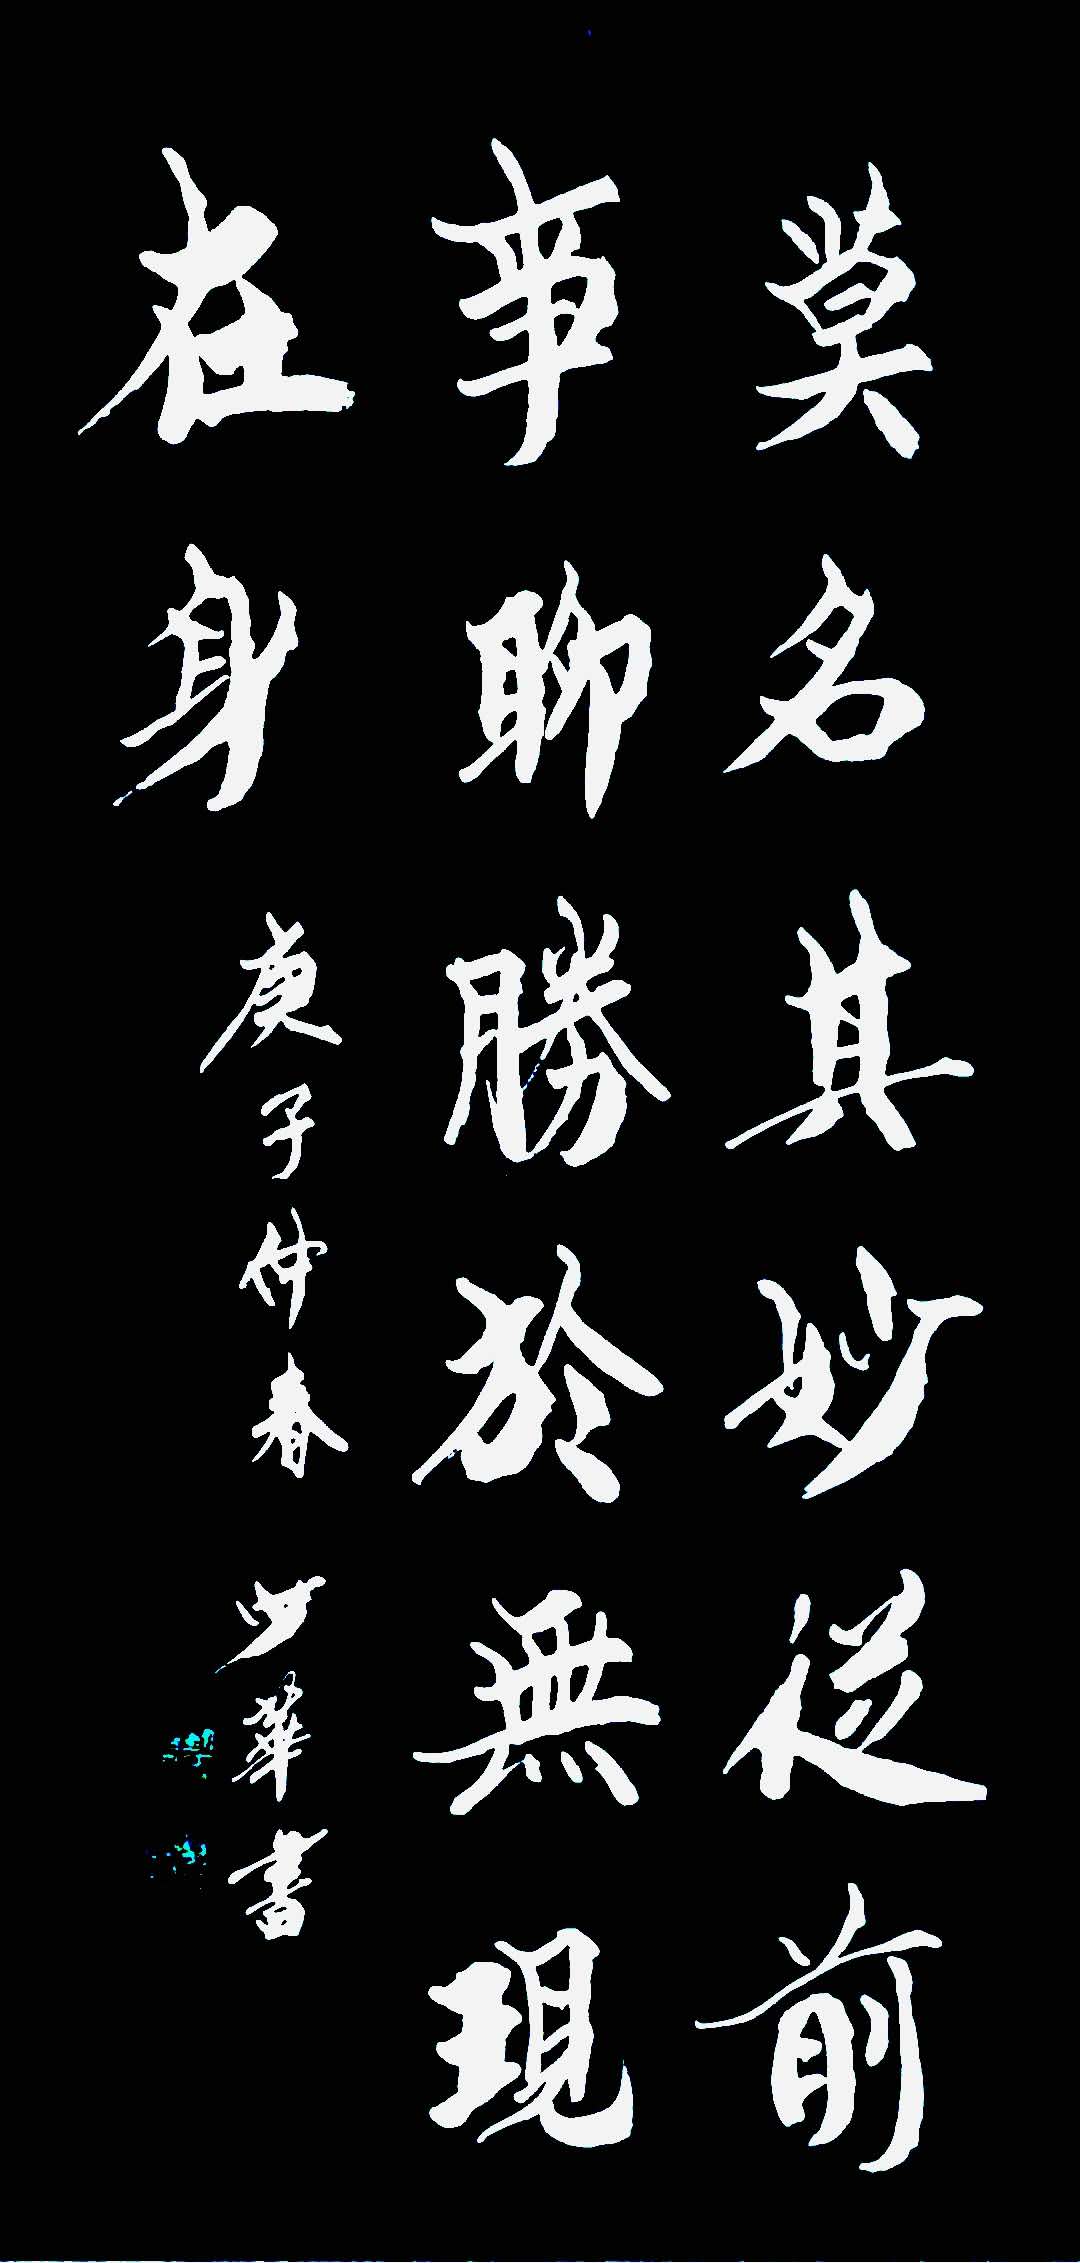 莫名其妙從前
事聊勝於無現
在身
庚子仲春 少華書